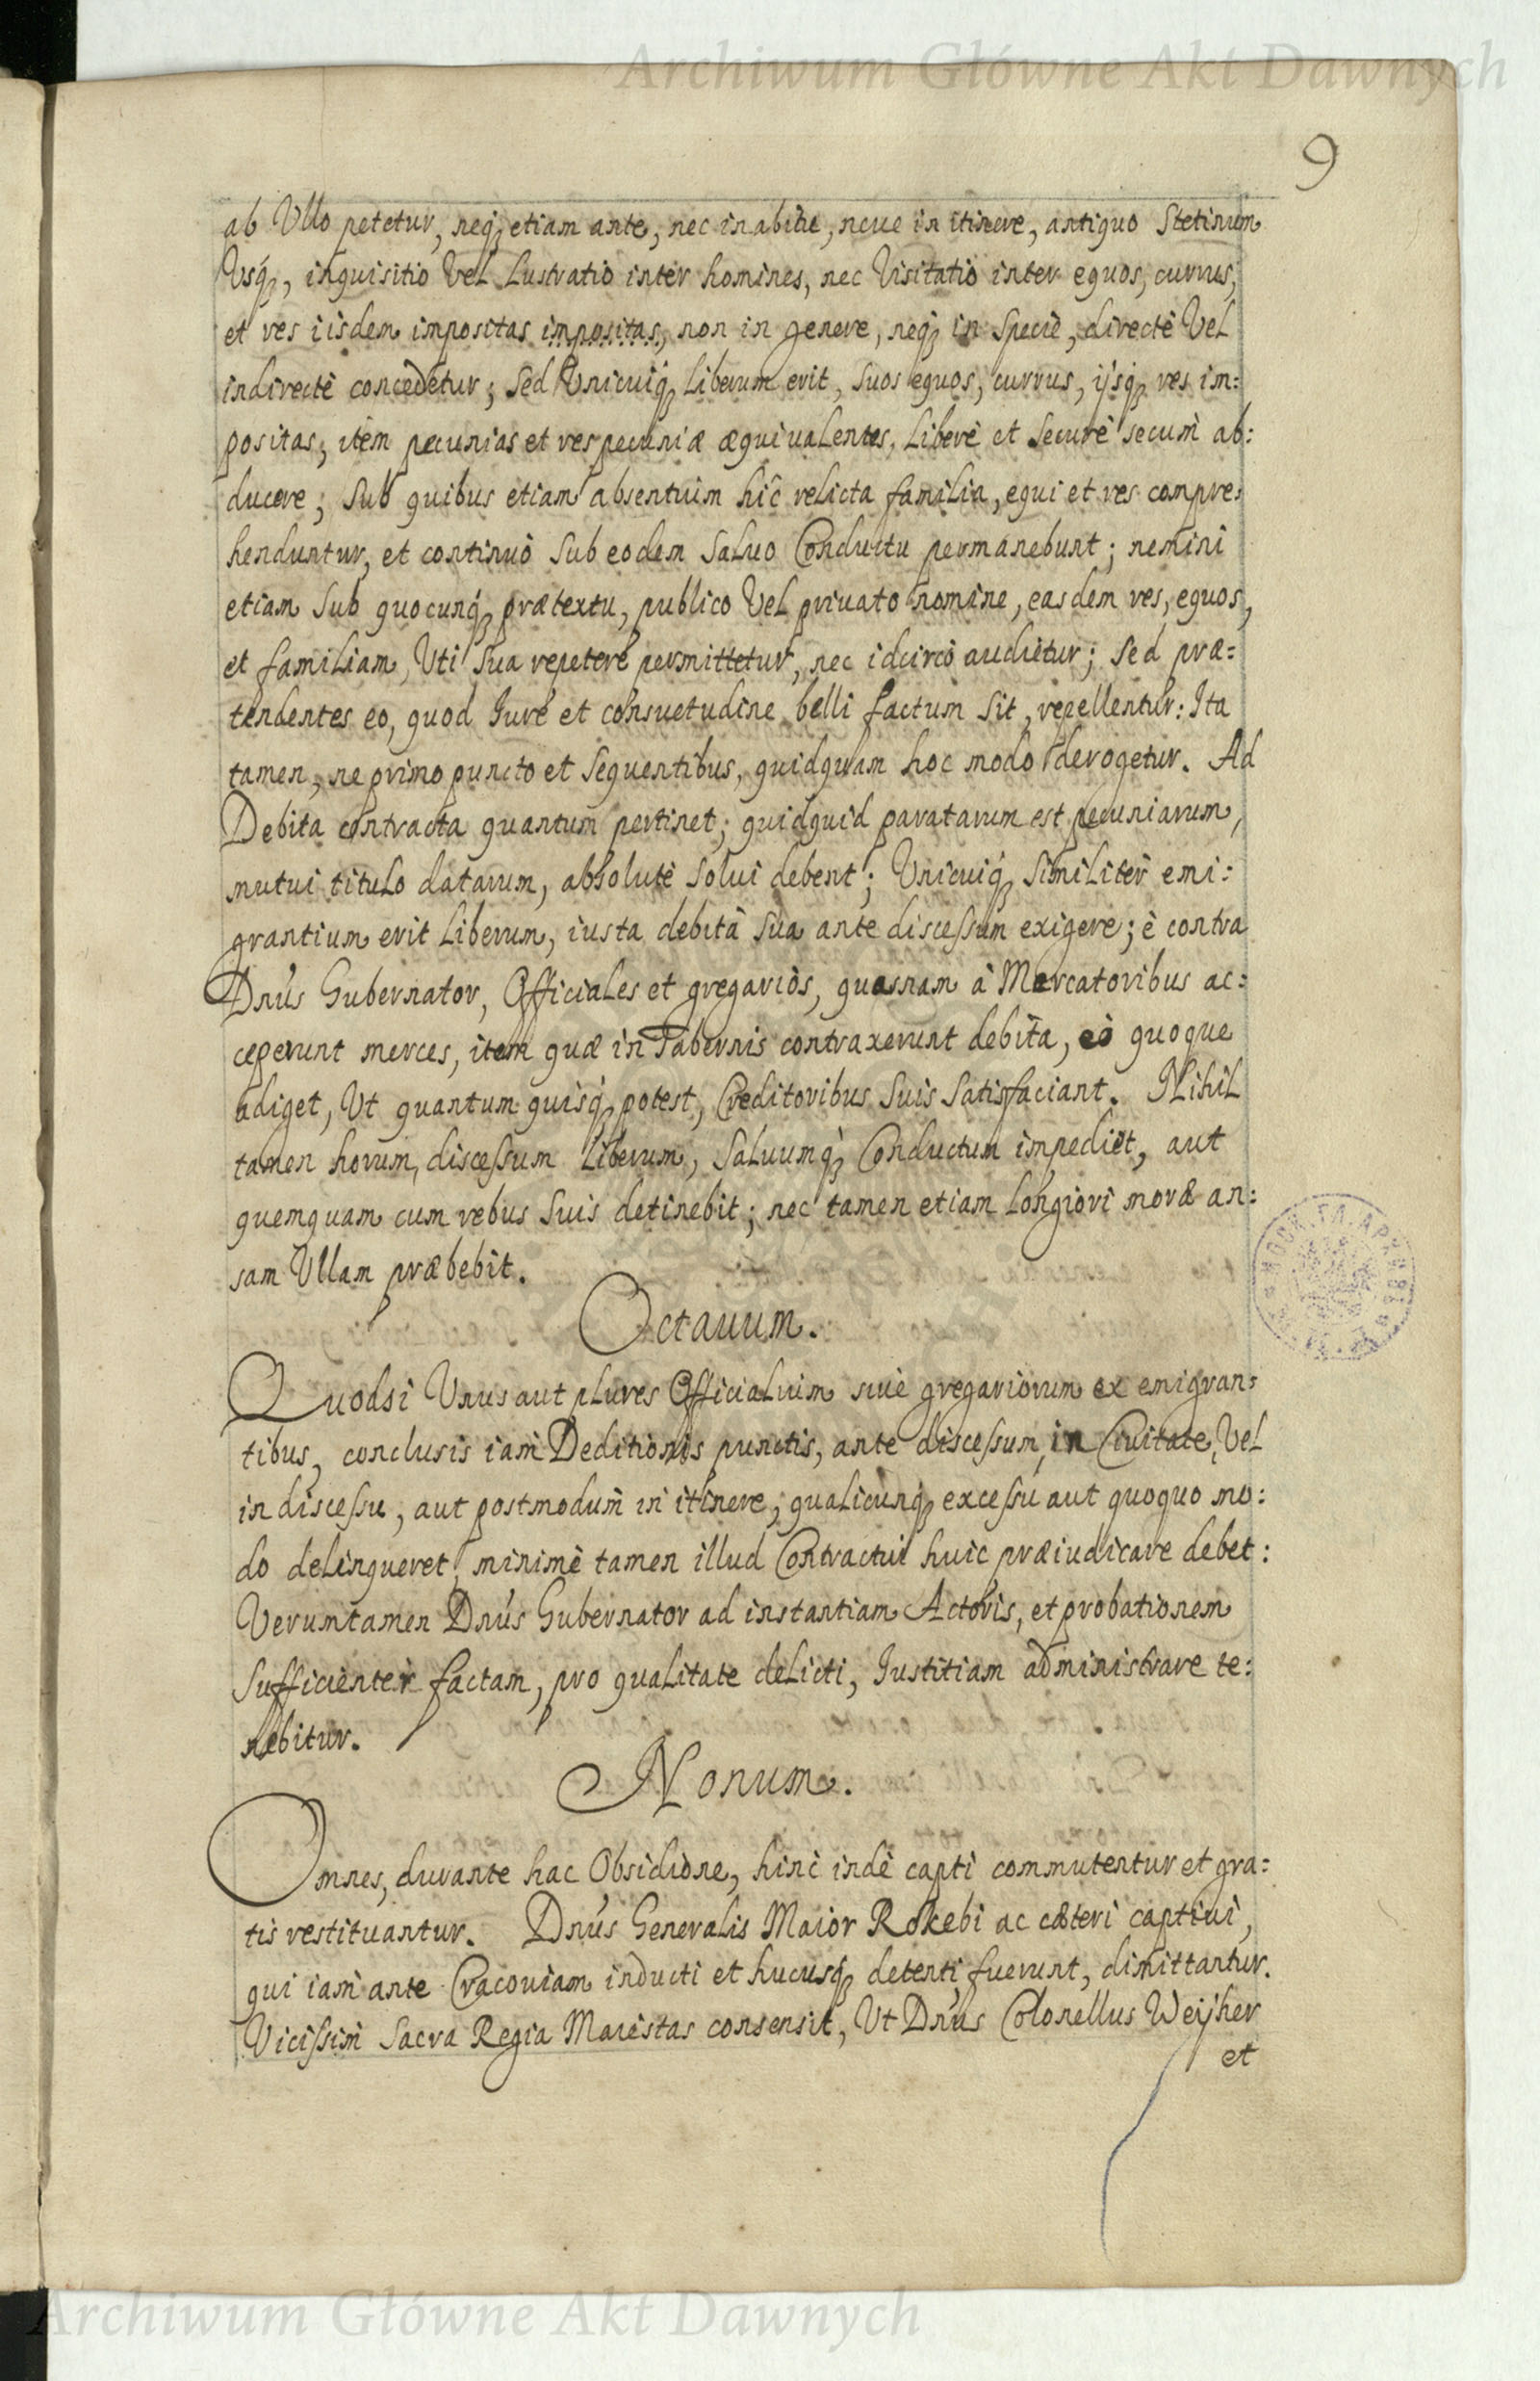 Archiwum Główne Akt Dawnych
9
ab Ullo petetur, neq; etiam ante, nec in abitu, neue in itinere, antiquo Stetinum
Usq;, inquisitio Vel Lustratio inter homines, nec Visitatio inter equos, currus,
et res iisdem impositas impositas, non in genere, neq; in Specie, directè Vel
indirectè concedetur; Sed Unicuiq; Liberum erit, suos equos, currus, ijsq; res im:
positas; item pecunias et res pecuniæ æquiualentes, Liberè et Securè secum ab:
ducere; Sub quibus etiam absentium hîc relicta familia, equi et res compre:
henduntur, et continuò Sub eodem Saluo Conductu permanebunt; nemini
etiam Sub quocunq; prætextu, publico Vel priuato nomine, easdem res, equos,
et familiam, Uti Sua repetere permittetur, nec idcircò audietur; Sed præ:
tendentes eo, quod Iure et consuetudine belli factum Sit, repellentur: Ita
tamen, ne primo puncto et Sequentibus, quidquam hoc modo derogetur. Ad
Debita contracta quantum pertinet; quidquid paratarum est pecuniarum,
mutui titulo datarum, absolutè Solui debent; Unicuiq; Similiter emi:
grantium erit Liberum, iusta debita Sua ante discessum exigere; è contra
Dnús Gubernator, Officiales et gregarios, quasnam à Mercatoribus ac:
ceperunt merces, item quæ in Tabernis contraxerunt debita, eò quoque
adiget, Ut quantum quisq; potest, Creditoribus Suis Satisfaciant. Nihil
tamen horum, discessum Liberum, Saluumq; Conductum impediet, aut
quemquam cum rebus Suis detinebit; nec tamen etiam Longiori moræ an:
sam Ullam præbebit.
Octauum.
Quodsi Unus aut plures Officialium siue gregariorum ex emigran:
tibus, conclusis iam Deditionis punctis, ante discessum, in Ciuitate, Vel
in discessu, aut postmodum in itinere, qualicunq; excessu aut quoquo mo:
do delinqueret, minimè tamen illud Contractui huic præiudicare debet:
Veruntamen Dnús Gubernator ad instantiam Actoris, et probationem
Sufficienter factam, pro qualitate delicti, Iustitiam administrare te:
nebitur.
Nonum.
Omnes, durante hac Obsidione, hinc indè capti commutentur et gra:
tis restituantur. Dnús Generalis Maior Rokebi ac cæteri captiui,
qui iam ante Cracouiam inducti et hucusq; detenti fuerunt, dimittantur.
Vicissim Sacra Regia Maiestas consensit, Ut Dnús Colonellus Weijher
et
Archiwum Główne Akt Dawnych